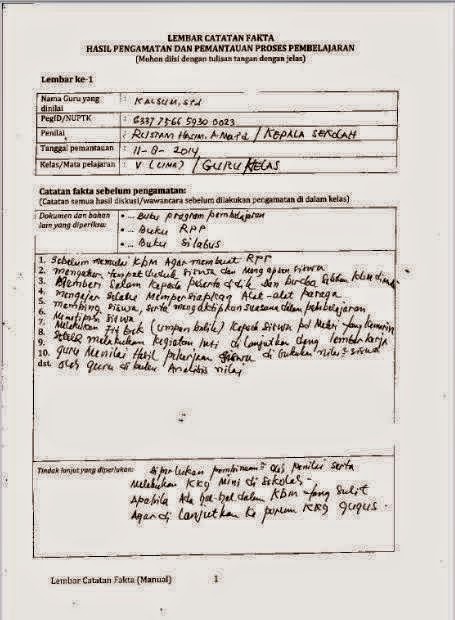 LEMBAR CATATAN FAKTA
HASIL PENGAMATAN DAN PEMANTAUAN PROSES PEMBELAJARAN
(Mohon diisi dengan tulisan tangan dengan jelas)
Lembar ke-1
Nama Guru yang dinilai : KALSUM, S.Pd
PegID/NUPTK : 6337 7566 5930 0023
Penilai : RUSTAM HASIM, A.Ma.Pd / KEPALA SEKOLAH
Tanggal pemantauan : 11-8-2014
Kelas/Mata pelajaran : V (LIMA) / GURU KELAS
Catatan fakta sebelum pengamatan:
(Catatan semua hasil diskusi/wawancara sebelum dilakukan pengamatan di dalam kelas)
Dokumen dan bahan lain yang diperiksa:
• ... Buku program pembelajaran
• ... Buku RPP
• ... Buku Silabus
1. Sebelum memulai KBM Agar membuat RPP
2. mengatur tempat duduk siswa dan Mengapsen siswa
3. Memberi Salam kepada peserta didik dan berdoa
4. mengajar selalu Mempersiapkan Alat-alat peraga
5. siswa, serta mengaktifkan suasana dalam pembelajaran
6. siswa
7. Melakukan (umpan balik) Kepada siswa yang kemarin
8. Selesai melakukan kegiatan inti di lanjutkan dengan lembar kerja
9. guru Menilai Hasil pekerjaan siswa di nilai siswa
10. oleh guru di buku Analisis nilai
dst.
Tindak lanjut yang diperlukan:
diperlukan pembinaan oleh penilai serta
Melakukan KKG Mini di sekolah
Apabila Ada hal-hal dalam KBM yang Sulit
Agar di Lanjutkan ke porum KKG gugus.
Lembar Catatan Fakta (Manual) 1